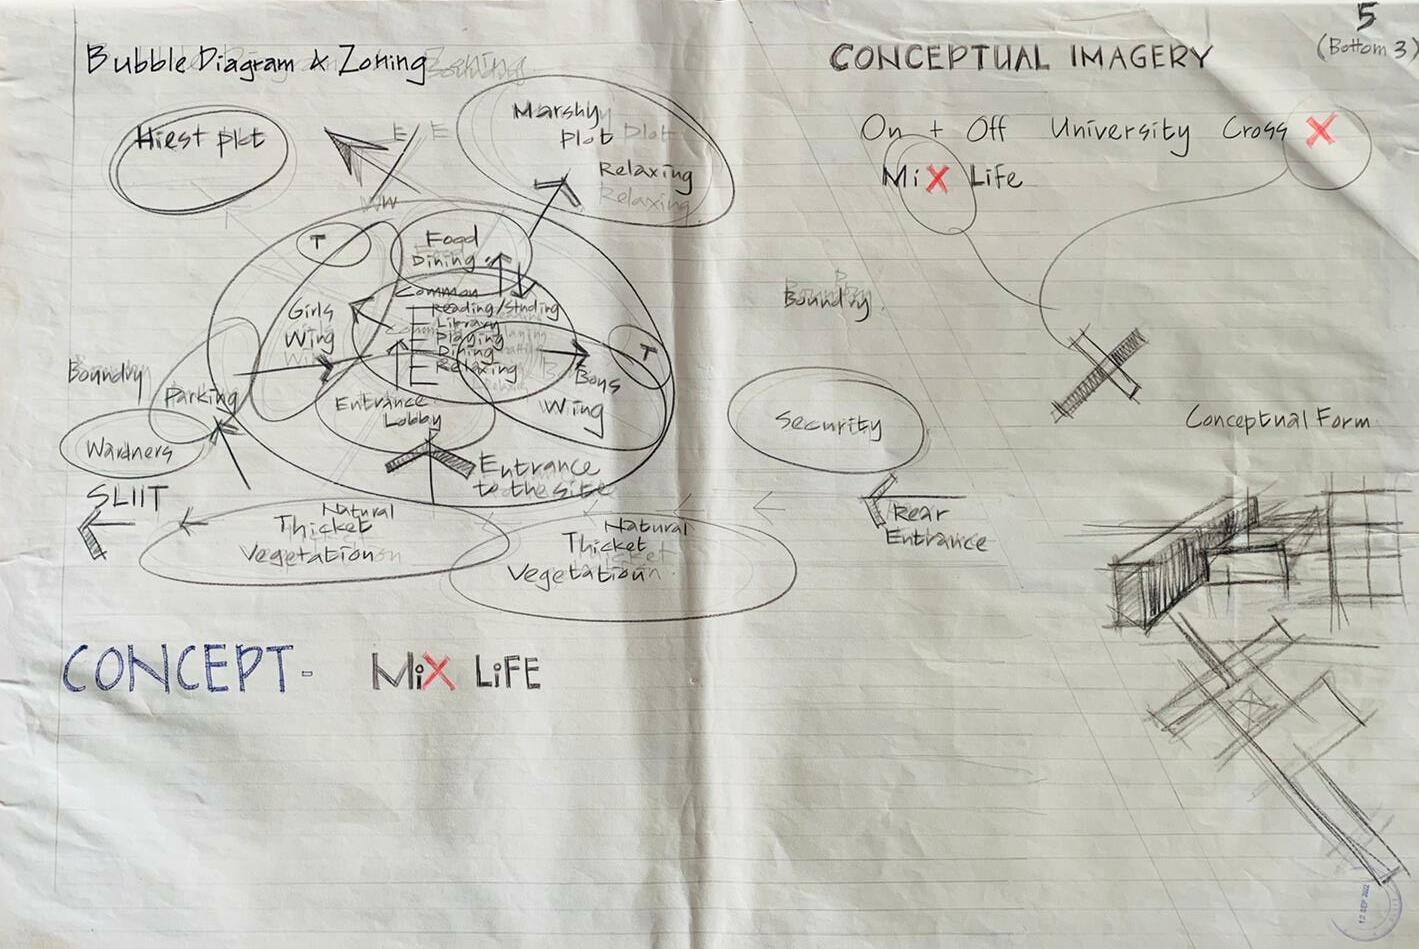 5
(Bottom 3)
Bubble Diagram & Zoning
CONCEPTUAL IMAGERY
Hiest plot
E
W
Marshy
Plot
Relaxing
On + Off University Cross X
MiX Life
T
Food
Dining
Common
Reading/Studing
Library
Playing
Dining
Relaxing
Girls
Wing
T
Boys
Wiing
Boundry
Boundry
Parking
Entrance
Lobby
Wardners
Security
Entrance
to the site
SLIIT
Natural
Thicket
Vegetation
Natural
Thicket
Vegetation
Rear
Entrance
Conceptual Form
CONCEPT- MiX LiFE
12 SEP 2022